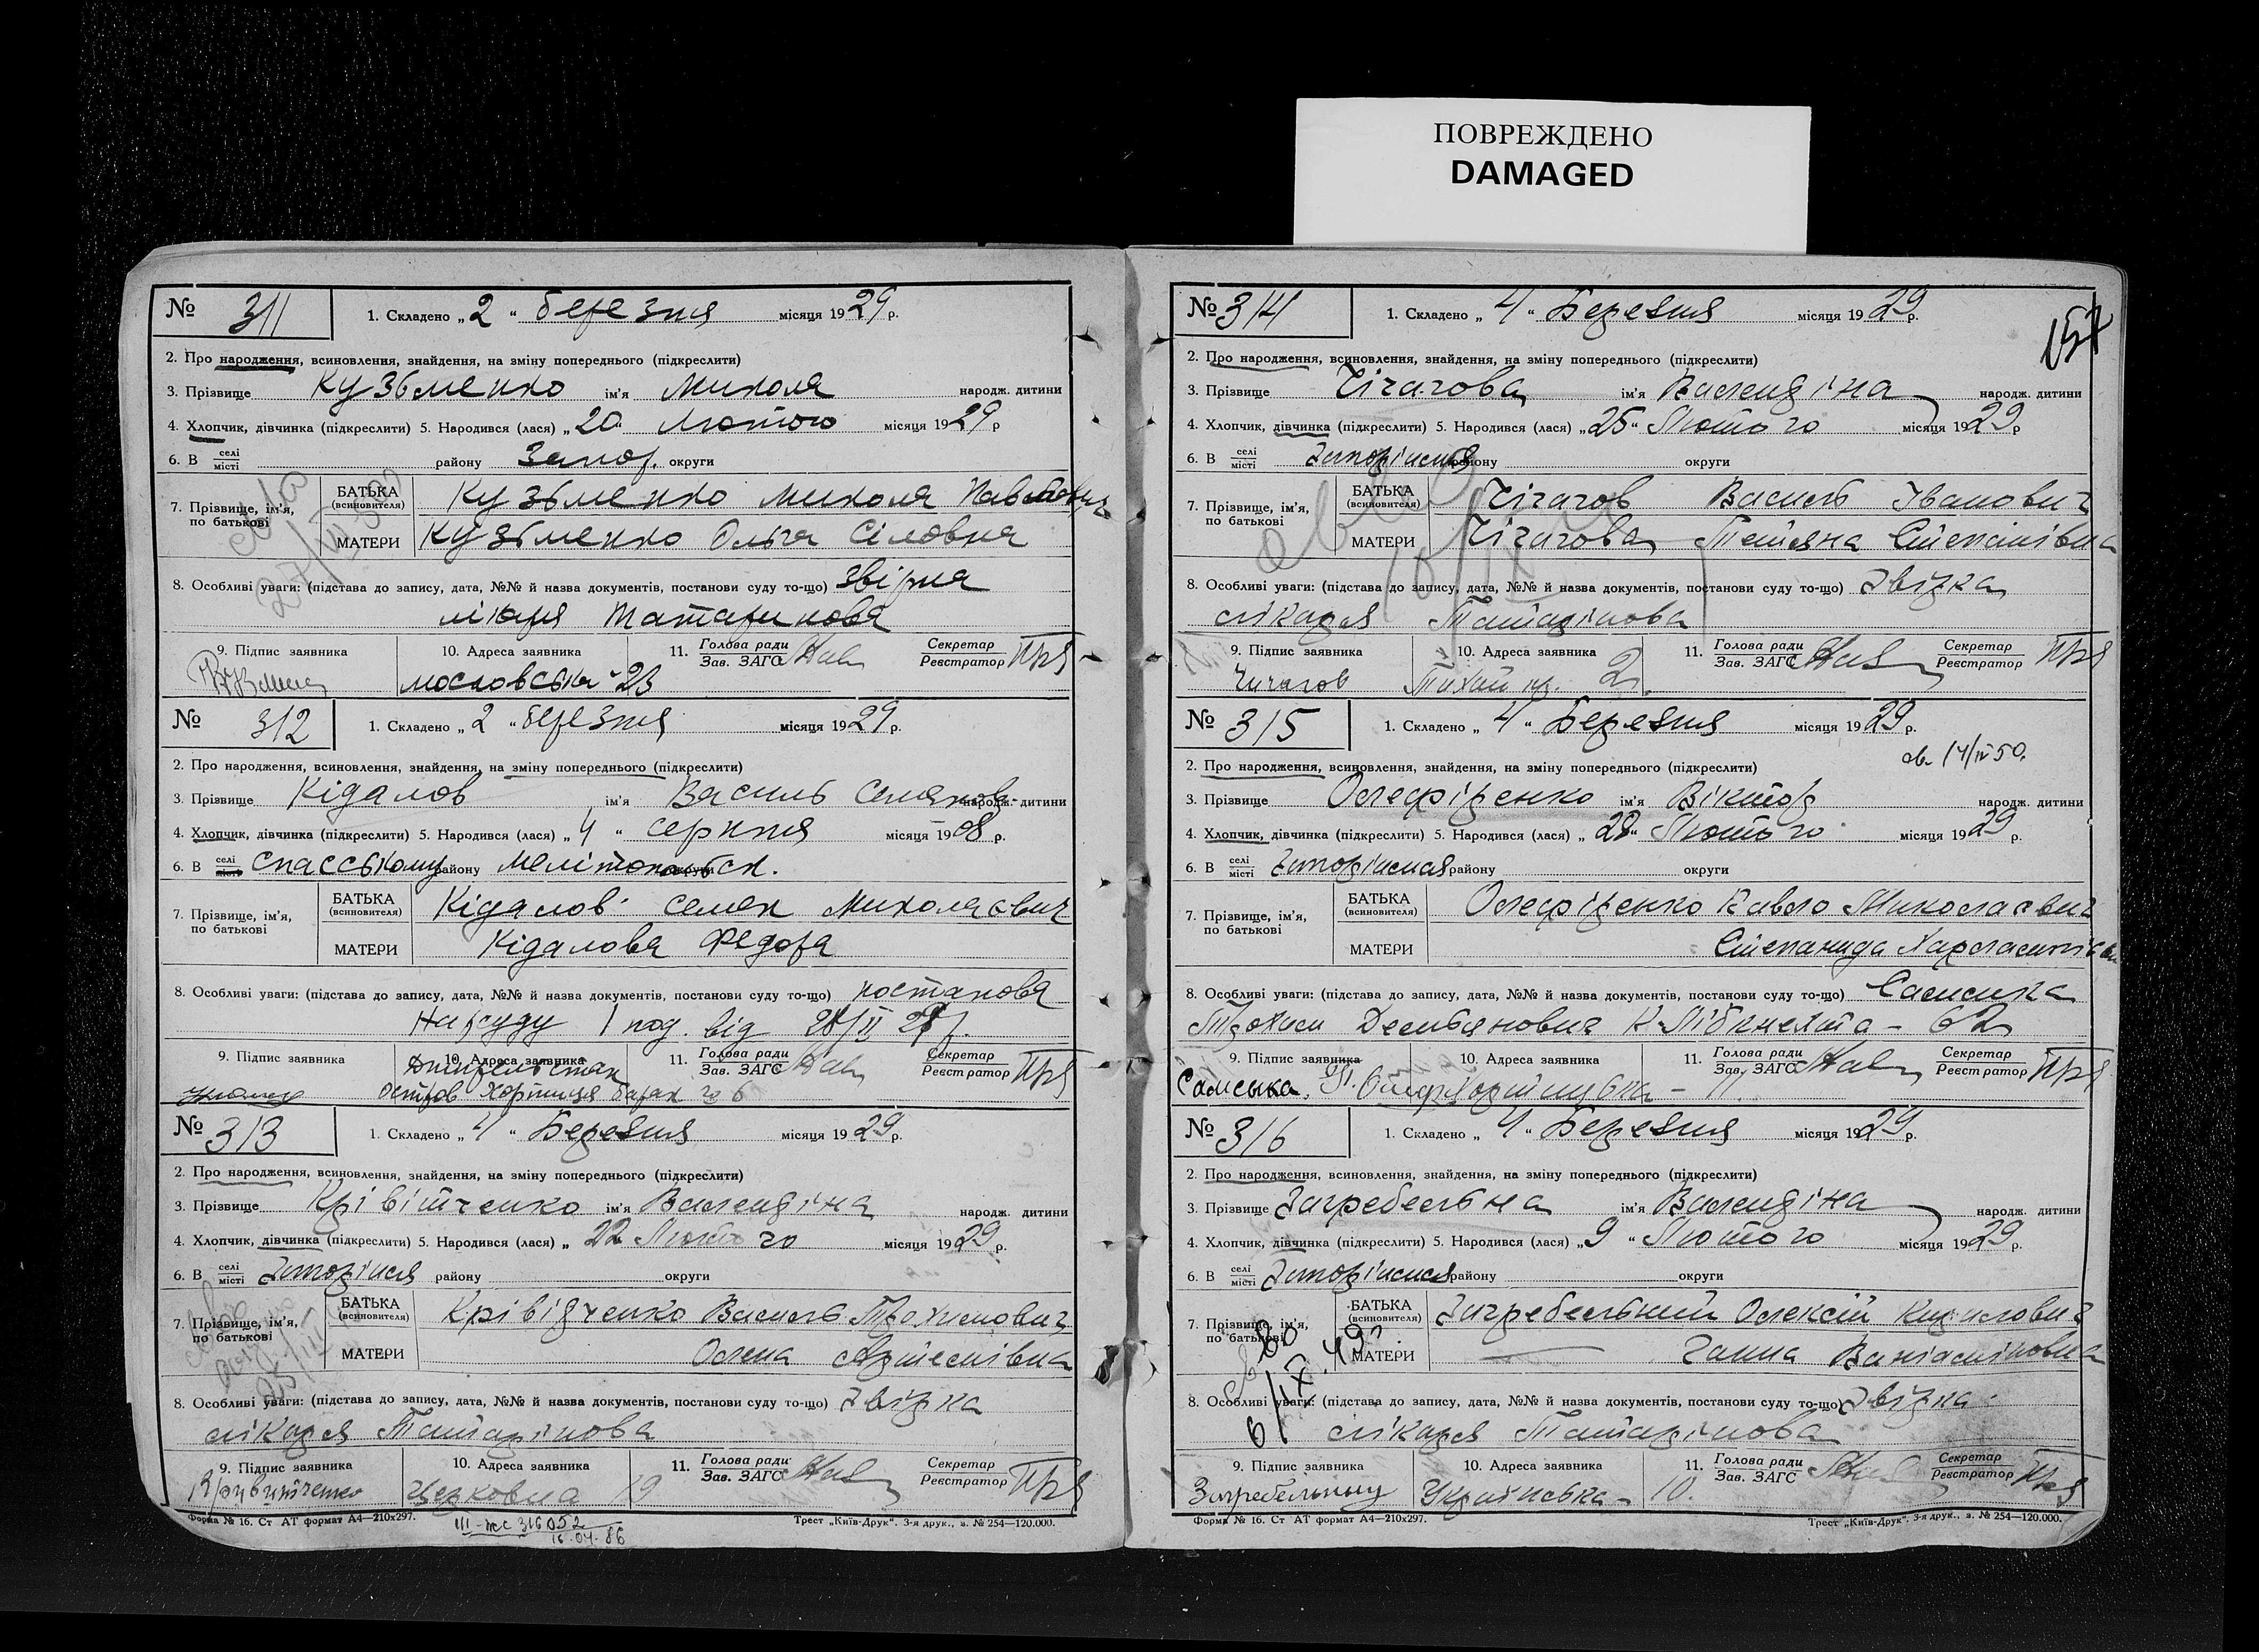 ПОВРЕЖДЕНО
DAMAGED
№ 311 1. Складено „ 2 “ березня місяця 1929 р.
2. Про народження, всиновлення, знайдення, на зміну попереднього (підкреслити)
3. Прізвище Кузьменко ім'я Микола народж. дитини
4. Хлопчик, дівчинка (підкреслити) 5. Народився (лася) „ 20 Лютого місяця 1929 р
6. В селі місті району Запор. округи
7. Прізвище, ім'я, по батькові
БАТЬКА (всиновителя) Кузьменко Микола Павлович
МАТЕРИ Кузьменко Ольга Сіловна
8. Особливі уваги: (підстава до запису, дата, №№ й назва документів, постанови суду то-що) Звірка
лікаря Татаринова
9. Підпис заявника 10. Адреса заявника 11. Голова ради Зав. ЗАГС Секретар Реєстратор
московська 23
№ 312 1. Складено „ 2 “ березня місяця 1929 р.
2. Про народження, всиновлення, знайдення, на зміну попереднього (підкреслити)
3. Прізвище Кідалов ім'я Василь народж. дитини
4. Хлопчик, дівчинка (підкреслити) 5. Народився (лася) „ 4 “ серпня місяця 1908 р.
6. В селі місті Спаському району Мелітопольск. округи
7. Прізвище, ім'я, по батькові
БАТЬКА (всиновителя) Кідалов Семен Миколаєвич
МАТЕРИ Кідалова Федора
8. Особливі уваги: (підстава до запису, дата, №№ й назва документів, постанови суду то-що) постанова
Нарсуду 1 від
9. Підпис заявника 10. Адреса заявника 11. Голова ради Зав. ЗАГС Секретар Реєстратор
Острів Хортиця барак № 6
№ 313 1. Складено „ 4 “ Березня місяця 1929 р.
2. Про народження, всиновлення, знайдення, на зміну попереднього (підкреслити)
3. Прізвище Крівітченко ім'я Валендіна народж. дитини
4. Хлопчик, дівчинка (підкреслити) 5. Народився (лася) „ 22 Лютого місяця 1929 р.
6. В селі місті Запоріжжя району округи
7. Прізвище, ім'я, по батькові
БАТЬКА (всиновителя) Крівідченко Василь Трохимович
МАТЕРИ Олена Артемівна
8. Особливі уваги: (підстава до запису, дата, №№ й назва документів, постанови суду то-що) Звірка
лікаря Татарінова
9. Підпис заявника 10. Адреса заявника 11. Голова ради Зав. ЗАГС Секретар Реєстратор
Кривитченко Церковна 19
Форма № 16. Ст АТ формат А4—210х297. Трест „Київ-Друк“. 3-я друк., з. № 254—120.000.
III-жс 316052
16.04.86
157
№ 314 1. Складено „ 4 “ Березня місяця 1929 р.
2. Про народження, всиновлення, знайдення, на зміну попереднього (підкреслити)
3. Прізвище Чічагова ім'я Валендіна народж. дитини
4. Хлопчик, дівчинка (підкреслити) 5. Народився (лася) „ 25 “ Лютого місяця 1929 р
6. В селі місті Запоріжжя району округи
7. Прізвище, ім'я, по батькові
БАТЬКА (всиновителя) Чічагов Василь Іванович
МАТЕРИ Чічагова Тетяна Степанівна
8. Особливі уваги: (підстава до запису, дата, №№ й назва документів, постанови суду то-що) Звірка
лікаря Татарінова
9. Підпис заявника 10. Адреса заявника 11. Голова ради Зав. ЗАГС Секретар Реєстратор
Чичагов Тихий 2
№ 315 1. Складено „ 4 “ Березня місяця 1929 р.
2. Про народження, всиновлення, знайдення, на зміну попереднього (підкреслити)
3. Прізвище Олефіренко ім'я Віктор народж. дитини
4. Хлопчик, дівчинка (підкреслити) 5. Народився (лася) „ 28 “ Лютого місяця 1929 р.
6. В селі місті Запоріжжя району округи
7. Прізвище, ім'я, по батькові
БАТЬКА (всиновителя) Олефіренко Павло Миколаєвич
МАТЕРИ Степанида
8. Особливі уваги: (підстава до запису, дата, №№ й назва документів, постанови суду то-що)
К Лібкнехта - 62
9. Підпис заявника 10. Адреса заявника 11. Голова ради Зав. ЗАГС Секретар Реєстратор
№ 316 1. Складено „ 4 “ Березня місяця 1929 р.
2. Про народження, всиновлення, знайдення, на зміну попереднього (підкреслити)
3. Прізвище Загребельна ім'я Валендіна народж. дитини
4. Хлопчик, дівчинка (підкреслити) 5. Народився (лася) „ 9 “ Лютого місяця 1929 р.
6. В селі місті Запоріжжя району округи
7. Прізвище, ім'я, по батькові
БАТЬКА (всиновителя) Загребельний Олексій Кирилович
МАТЕРИ Ганна
8. Особливі уваги: (підстава до запису, дата, №№ й назва документів, постанови суду то-що) Звірка
лікаря Татарінова
9. Підпис заявника 10. Адреса заявника 11. Голова ради Зав. ЗАГС Секретар Реєстратор
Українська - 10.
Форма № 16. Ст АТ формат А4—210х297. Трест „Київ-Друк“. 3-я друк., з. № 254—120.000.